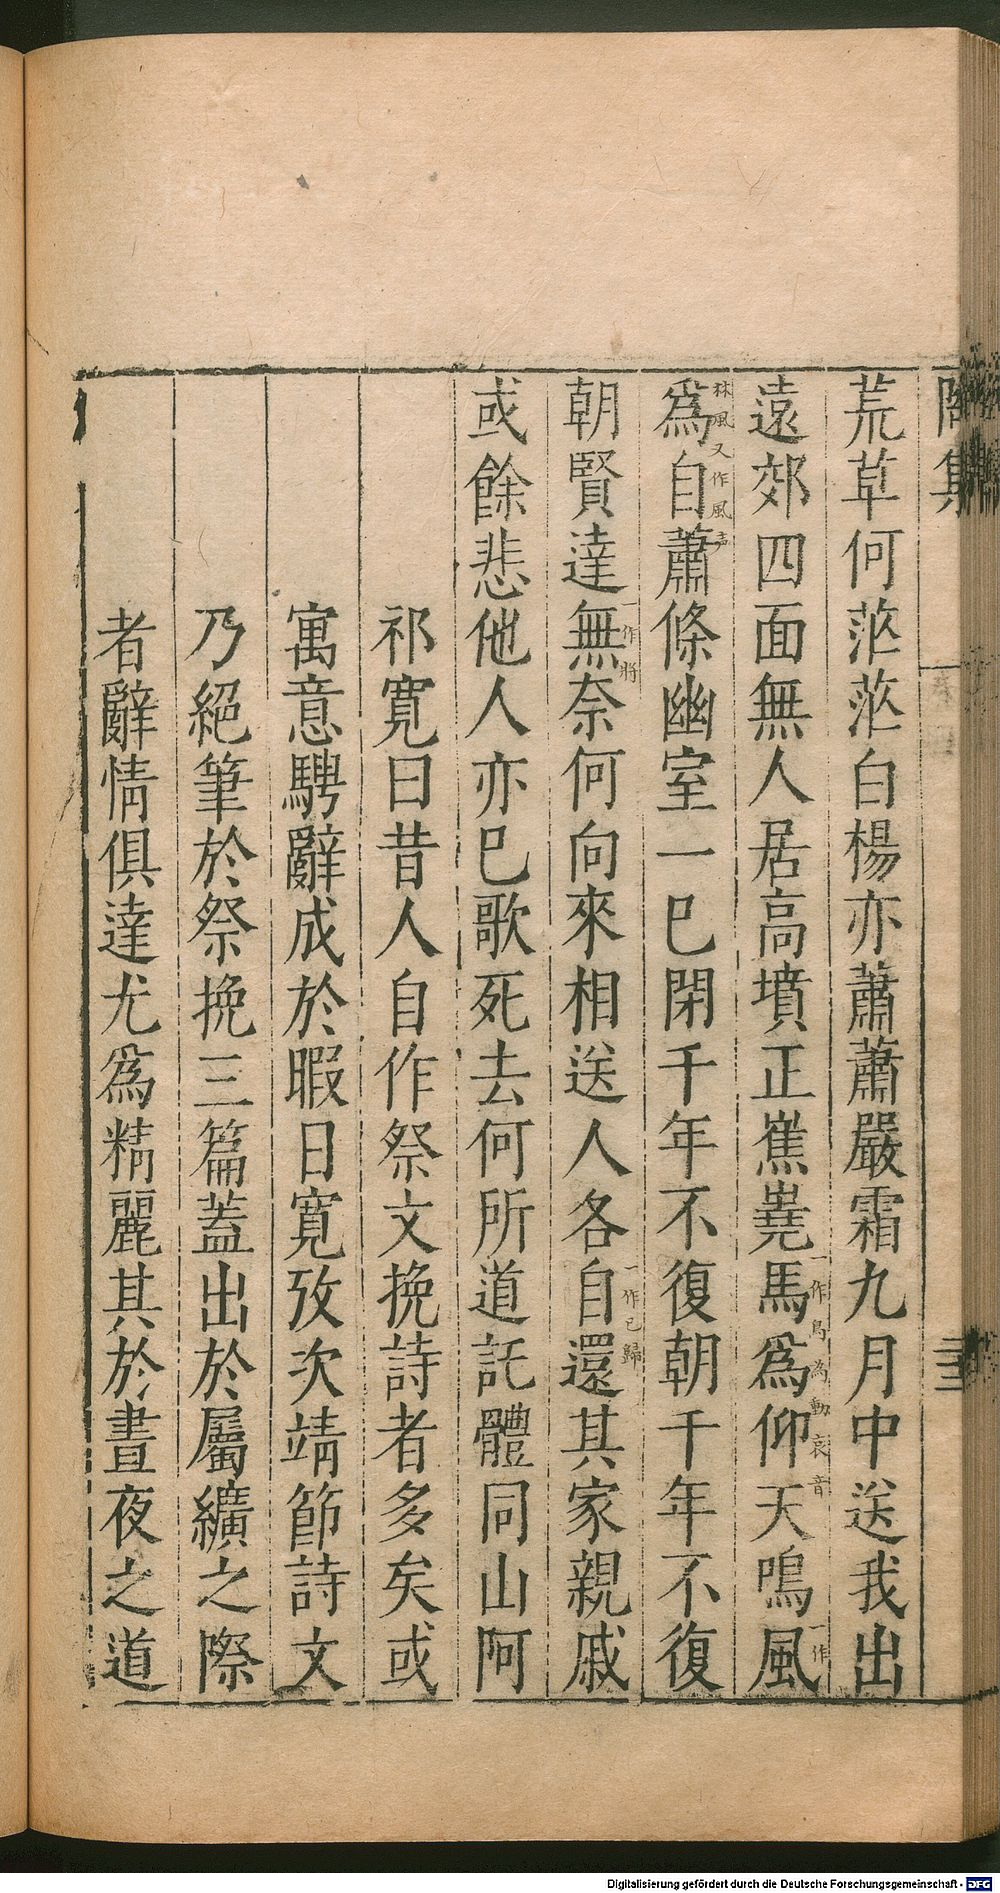 陶集
三
荒草何茫茫白楊亦蕭蕭嚴霜九月中送我出
遠郊四面無人居高墳正嶣嶤馬一作鳥為動哀音爲仰天鳴風一作
林風又作風聲爲自蕭條幽室一巳閉千年不復朝千年不復
朝賢達無一作將奈何向來相送人各自一作已歸還其家親戚
或餘悲他人亦巳歌死去何所道託體同山阿
祁寬曰昔人自作祭文挽詩者多矣或
寓意騁辭成於暇日寬攷次靖節詩文
乃絕筆於祭挽三篇蓋出於屬纊之際
者辭情俱達尤爲精麗其於晝夜之道
Digitalisierung gefördert durch die Deutsche Forschungsgemeinschaft - DFG